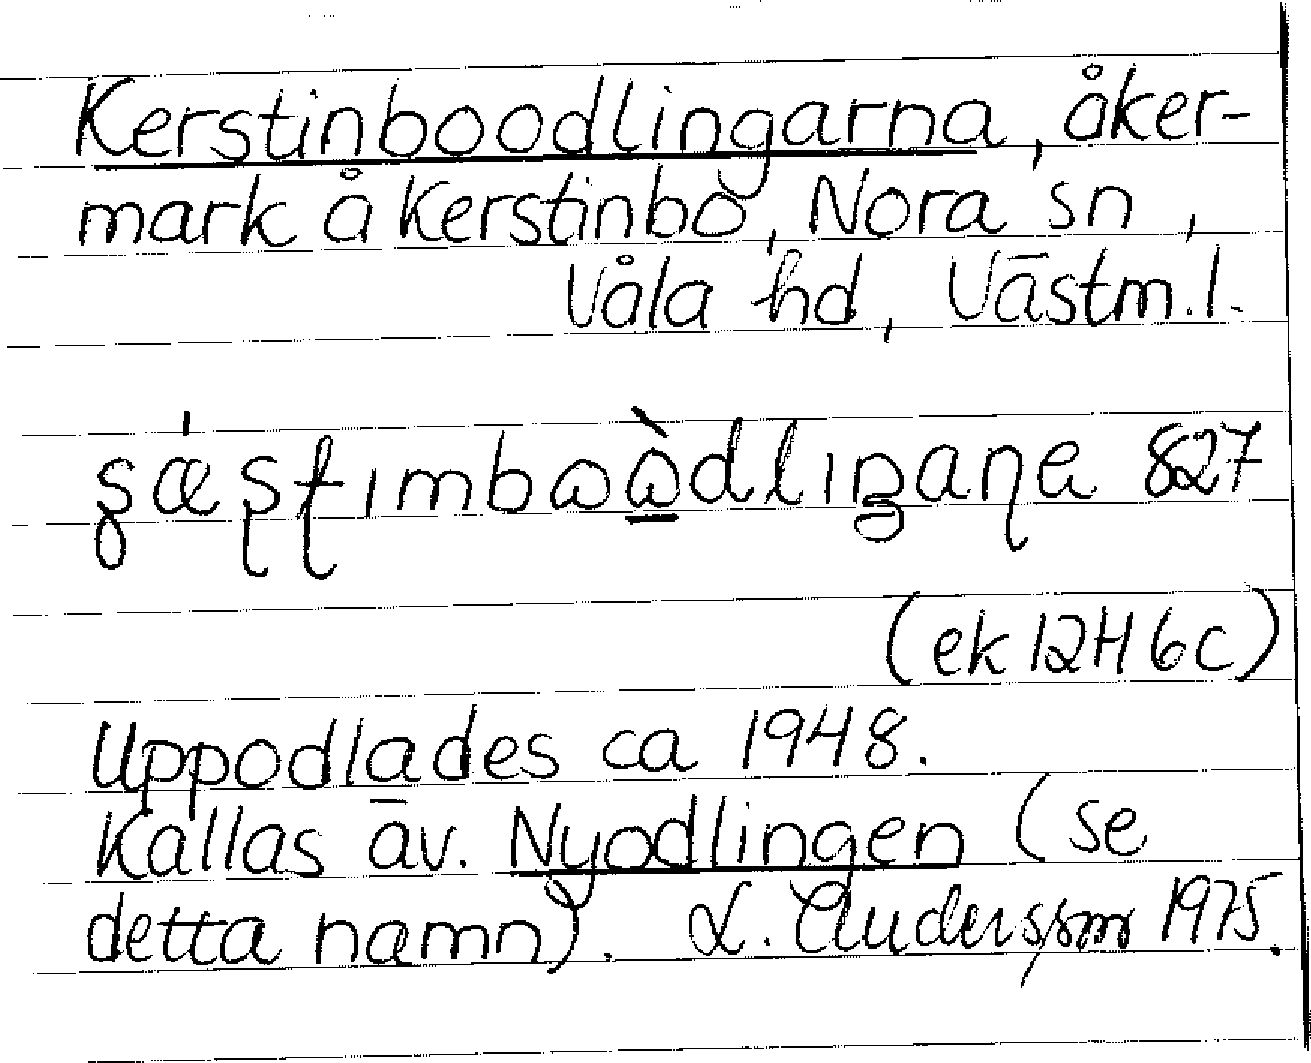 Kerstinboodlingarna, åker-
mark å Kerstinbo, Nora sn,
Våla hd, Västm.l.
827
(ek 12H 6c)
Uppodlades ca 1948.
Kallas äv. Nyodlingen (se
detta namn). L. Andersson 1975.